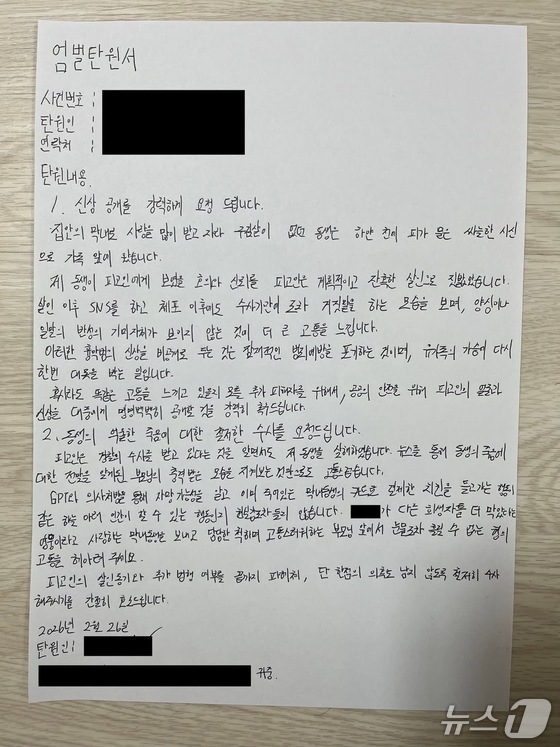 엄벌탄원서
사건번호 :
탄원인 :
연락처 :
탄원내용.
1. 신상 공개를 강력하게 요청 드립니다.
집안의 막내로 사랑을 많이 받고 자라 구김살이 없던 동생은 하얀 천에 피가 묻은 싸늘한 시신
으로 가족 앞에 왔습니다.
제 동생이 피고인에게 보였을 호의와 신뢰를 피고인은 계획적이고 잔혹한 살인으로 짓밟았습니다.
살인 이후 SNS를 하고 체포 이후에도 수사기관에 조차 거짓말을 하는 모습을 보며, 양심이나
일말의 반성의 기미조차가 보이지 않는 것이 더 큰 고통을 느낍니다.
이러한 흉악범의 신상을 비공개로 두는 것은 잠재적인 범죄예방을 포기하는 것이며, 유가족의 가슴에 다시
한번 대못을 박는 일입니다.
혹시라도 똑같은 고통을 느끼고 있을지 모를 추가 피해자를 위해서, 공공의 안전을 위해 피고인의 얼굴과
신상을 대중에게 명명백백히 공개할 것을 강력히 촉구드립니다.
2. 동생의 억울한 죽음에 대한 철저한 수사를 요청드립니다.
피고인은 경찰이 수사를 받고 있다는 것을 알면서도 제 동생을 살해하였습니다. 뉴스를 통해 동생의 죽음에
대한 전말을 알게된 부모님의 충격 받는 모습을 지켜보는 것만으로도 고통스럽습니다.
GPT와 의사처방을 통해 사망가능성을 알고 이미 죽어있는 막내동생의 카드로 결제한 치킨을 들고가는 행동이
같은 하늘 아래 인간이 할 수 있는 행동인지 믿겨지지 않습니다. 가 다른 희생자를 더 막았다는
영웅이라고 사랑하는 막내동생을 보내고 담담한 척하며 고통스러워하는 부모님 앞에서 눈물조차 흘릴 수 없는 형의
고통을 헤아려 주세요.
피고인의 살인동기와 추가 범행 여부를 끝까지 파헤쳐, 단 한점의 의혹도 남지 않도록 철저히 수사
해주시기를 간절히 호소드립니다.
2026년 2월 26일
탄원인 :
귀중.
뉴스1